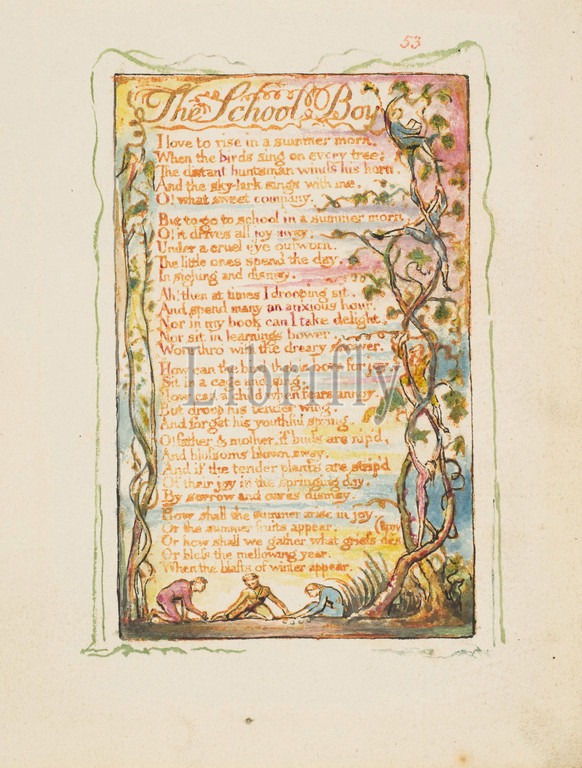 53
The School Boy
I love to rise in a summer morn,
When the birds sing on every tree;
The distant huntsman winds his horn
And the sky-lark sings with me.
O! what sweet company.
But to go to school in a summer morn,
O! it drives all joy away;
Under a cruel eye outworn,
The little ones spend the day,
In sighing and dismay.
Ah! then at times I drooping sit,
And spend many an anxious hour.
Nor in my book can I take delight,
Nor sit in learnings bower,
Worn thro' with the dreary shower.
How can the bird that is born for joy,
Sit in a cage and sing.
How can a child when fears annoy,
But droop his tender wing,
And forget his youthful spring.
O! father & mother, if buds are nip'd,
And blossoms blown away,
And if the tender plants are strip'd
Of their joy in the springing day,
By sorrow and cares dismay,
How shall the summer arise in joy
Or the summer fruits appear,
Or how shall we gather what griefs des
(troy
Or bless the mellowing year,
When the blasts of winter appear.
Librifly